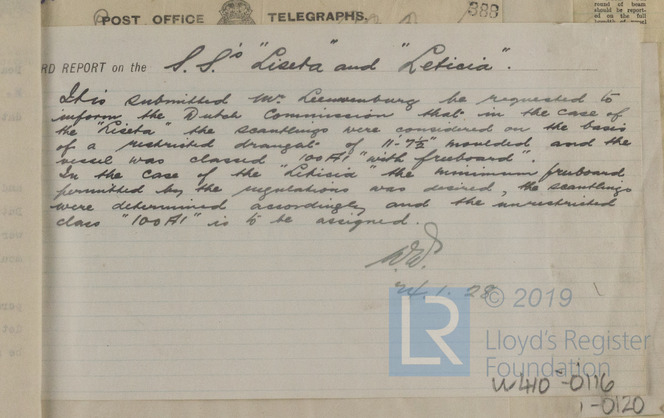 POST OFFICE TELEGRAPHS.
388
round of beam
should be report-
ed on the full
RD REPORT on the S.S.'s "Liseta" and "Leticia".
It is submitted Mr. Leeuwenburg be requested to
inform the Dutch Commission that in the case of
the "Liseta" the scantlings were considered on the basis
of a restricted draught of 11'-7½" moulded and the
vessel was classed "100A1 with freeboard".
In the case of the "Leticia" the minimum freeboard
permitted by the regulations was desired, the scantlings
were determined accordingly and the unrestricted
class "100A1" is to be assigned.
24.1.28
© 2019
LR
Lloyd's Register
Foundation
W410-0116
1-0120